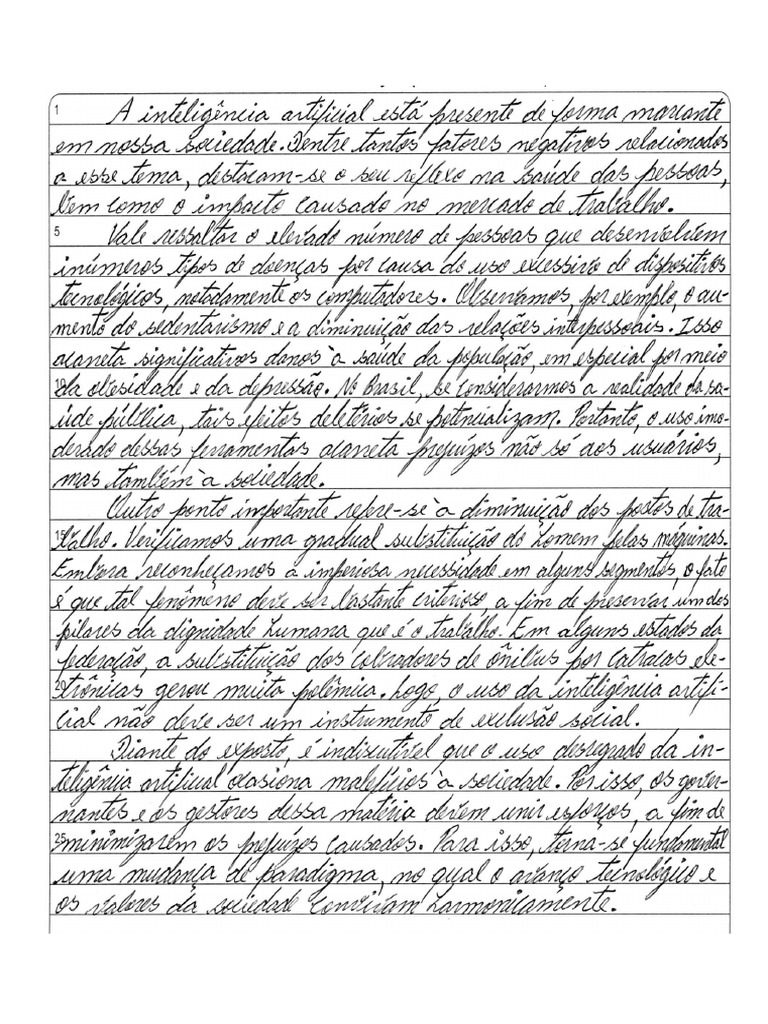 1 A inteligência artificial está presente de forma marcante
em nossa sociedade. Dentre tantos fatores negativos relacionados
a esse tema, destacam-se o seu reflexo na saúde das pessoas,
bem como o impacto causado no mercado de trabalho.
5 Vale ressaltar o elevado número de pessoas que desenvolvem
inúmeros tipos de doenças por causa do uso excessivo de dispositivos
tecnológicos, notadamente os computadores. Observamos, por exemplo, o au-
mento do sedentarismo e a diminuição das relações interpessoais. Isso
acarreta significativos danos à saúde da população, em especial por meio
10 da obesidade e da depressão. No Brasil, se considerarmos a realidade da sa-
úde pública, tais efeitos deletérios se potencializam. Portanto, o uso imo-
derado dessas ferramentas acarreta prejuízos não só aos usuários,
mas também à sociedade.
Outro ponto importante refere-se à diminuição dos postos de tra-
15 balho. Verificamos uma gradual substituição do homem pelas máquinas.
Embora reconheçamos a imperiosa necessidade em alguns segmentos, o fato
é que tal fenômeno deve ser bastante criterioso, a fim de preservar um dos
pilares da dignidade humana que é o trabalho. Em alguns estados da
federação, a substituição dos cobradores de ônibus por catracas ele-
20 trônicas gerou muita polêmica. Logo, o uso da inteligência artifi-
cial não deve ser um instrumento de exclusão social.
Diante do exposto, é indiscutível que o uso desregrado da in-
teligência artificial ocasiona malefícios à sociedade. Por isso, os gover-
nantes e os gestores dessa matéria devem unir esforços, a fim de
25 minimizarem os prejuízos causados. Para isso, torna-se fundamental
uma mudança de paradigma, no qual o avanço tecnológico e
os valores da sociedade convivam harmonicamente.